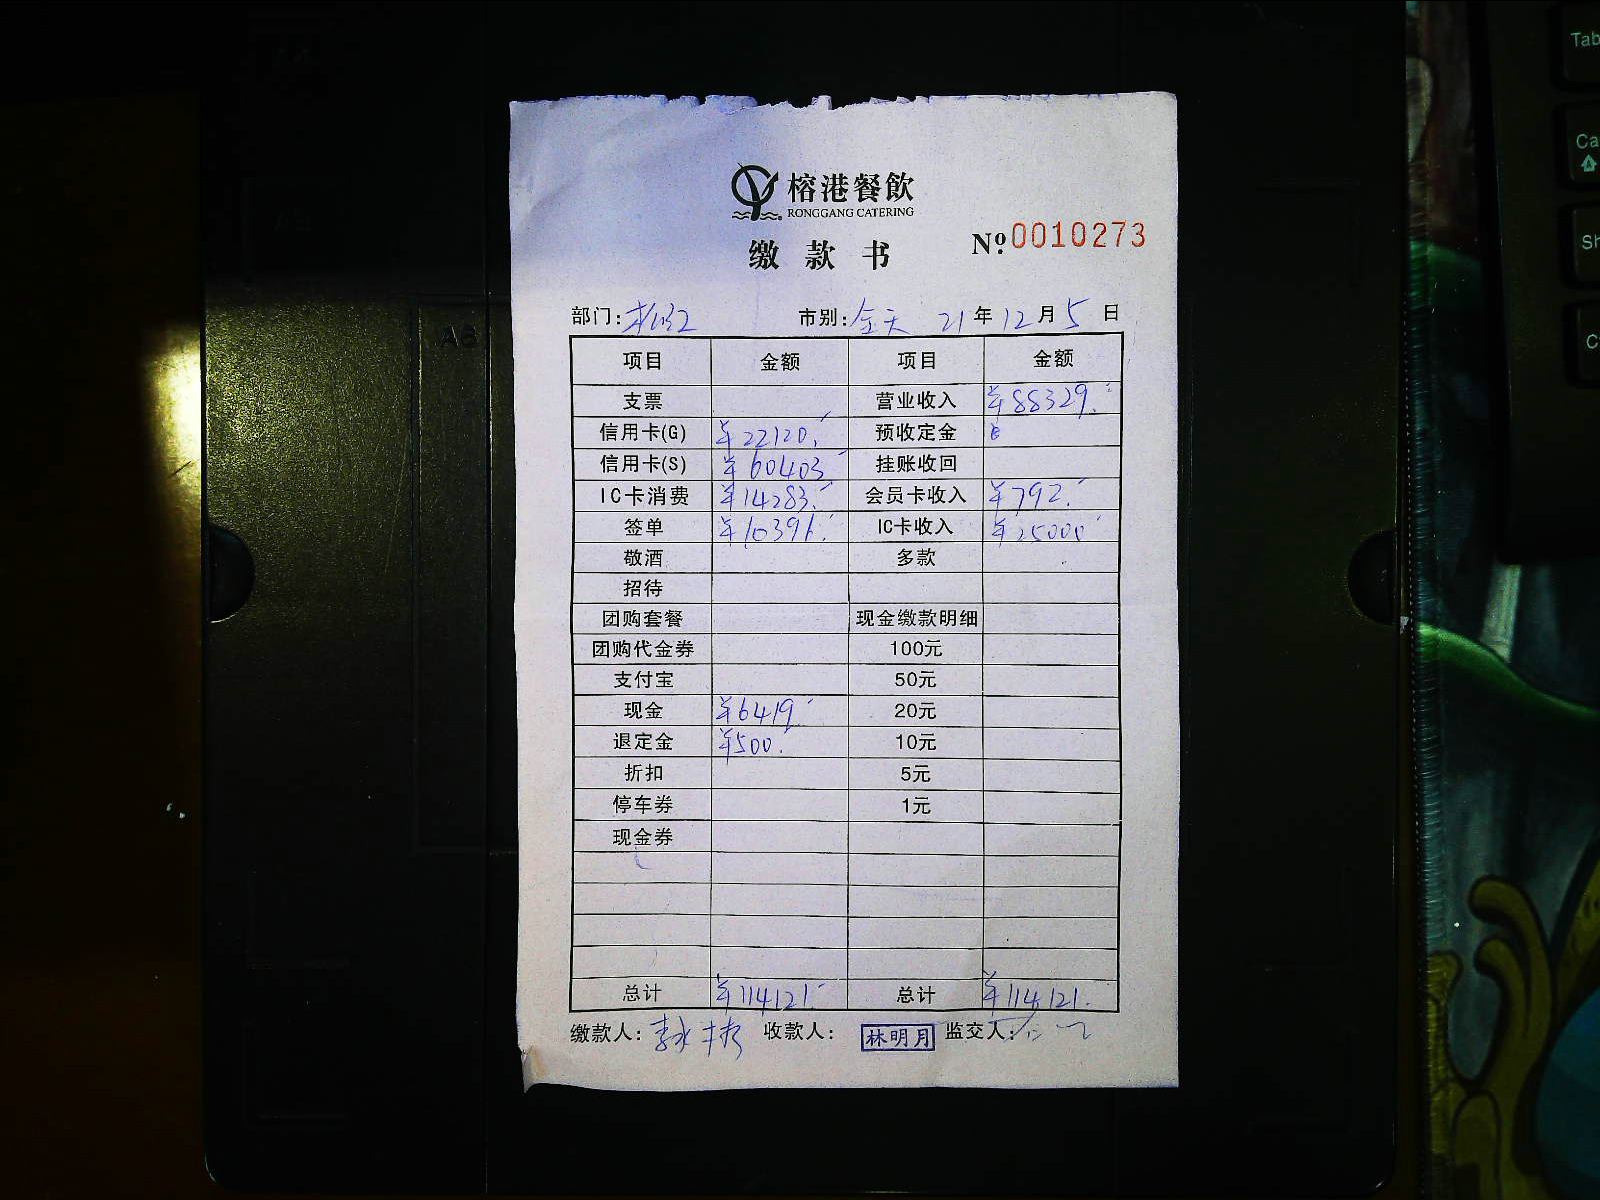 榕港餐飲
RONGGANG CATERING
缴款书 №0010273
部门: 市别:全天 21年12月5日
项目 金额 项目 金额
支票 营业收入 ¥88329.
信用卡(G) ¥22120. 预收定金
信用卡(S) ¥60403. 挂账收回
IC卡消费 ¥14283. 会员卡收入 ¥792.
签单 ¥10391. IC卡收入 ¥25000
敬酒 多款
招待
团购套餐 现金缴款明细
团购代金券 100元
支付宝 50元
现金 ¥6419. 20元
退定金 ¥500. 10元
折扣 5元
停车券 1元
现金券
总计 ¥114121. 总计 ¥114121.
缴款人: 收款人: 林明月 监交人:
Tab
Ca
Sh
C
A6